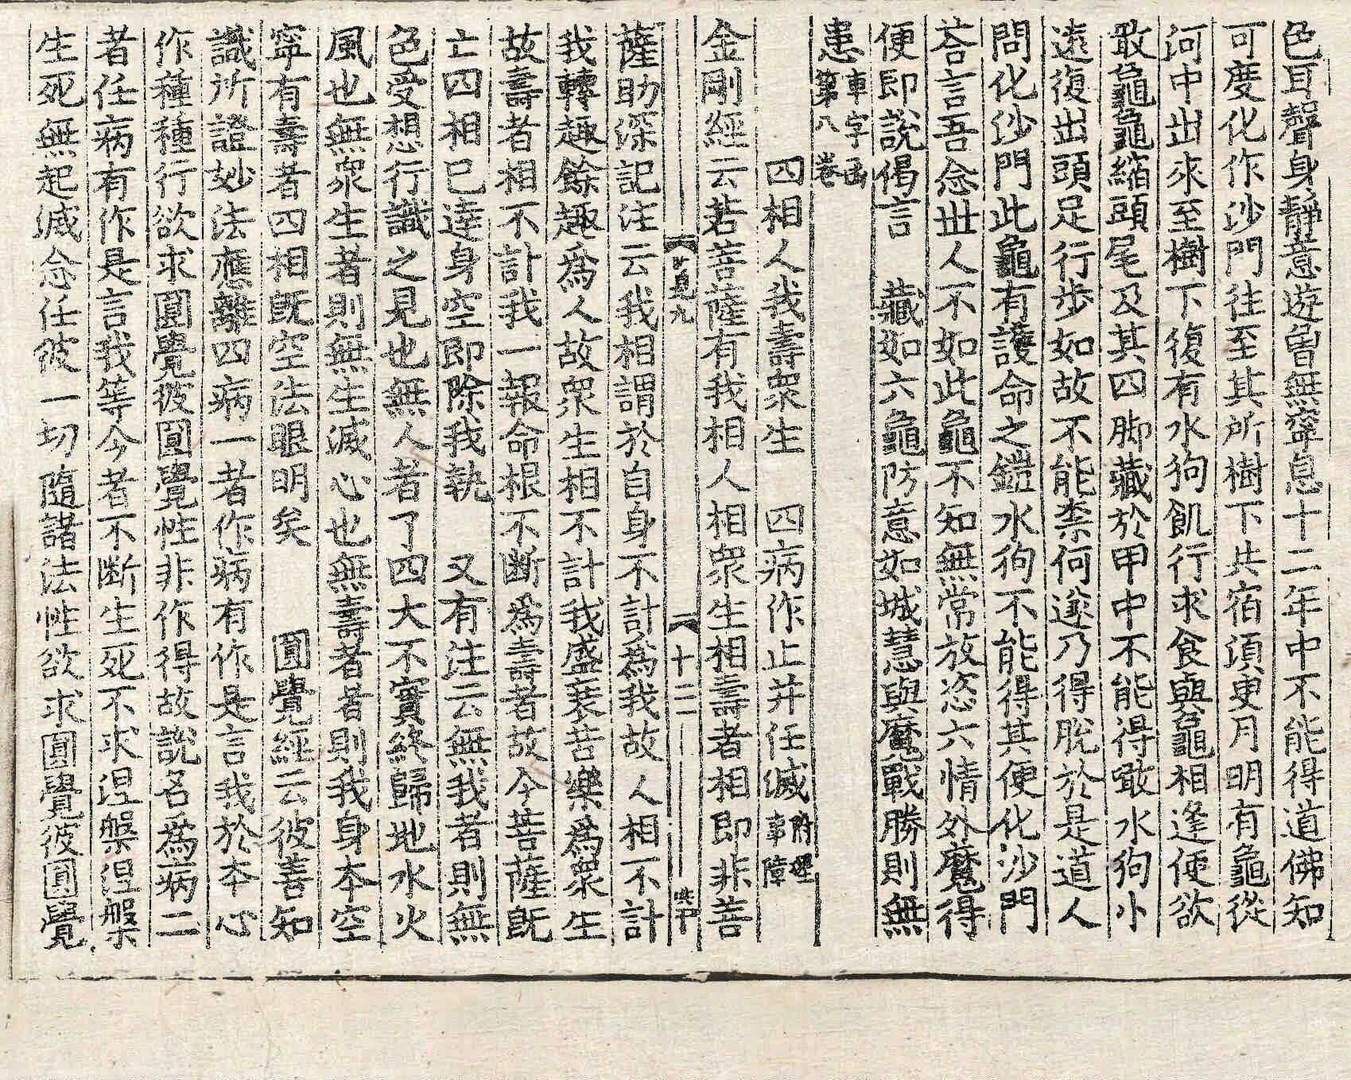 色耳聲身靜意遊曾無寧息十二年中不能得道佛知
可度化作沙門往至其所樹下共宿湏臾月明有龜從
河中出來至樹下復有水狗飢行求食與龜相逢便欲
敢龜龜縮頭尾及其四脚藏於甲中不能得敢水狗小
遠復出頭足行步如故不能柰何遂乃得脫於是道人
問化沙門此龜有護命之鎧水狗不能得其便化沙門
荅言吾念世人不如此龜不知無常放恣六情外魔得
便即說偈言　藏如六龜防意如城慧與魔戰勝則無
患車字函第八卷
四相人我壽衆生　四病作止并任滅
金剛經云若菩薩有我相人相衆生相壽者相即非菩
十二
薩助深記注云我相謂於自身不計為我故人相不計
我轉趣餘趣為人故衆生相不計我盛衰苦樂為衆生
故壽者相不計我一報命根不断為壽者故今菩薩旣
亡四相已達身空即除我執　又有注云無我者則無
色受想行識之見也無人者了四大不實終歸地水火
風也無衆生者則無生滅心也無壽者者則我身本空
寧有壽者四相旣空法眼明矣　圓覺經云彼善知
識所證妙法應離四病一者作病有作是言我於本心
作種種行欲求圓覺彼圓覺性非作得故說名為病二
者任病有作是言我等今者不断生死不求涅槃涅槃
生死無起滅念任彼一切隨諸法性欲求圓覺彼圓覺